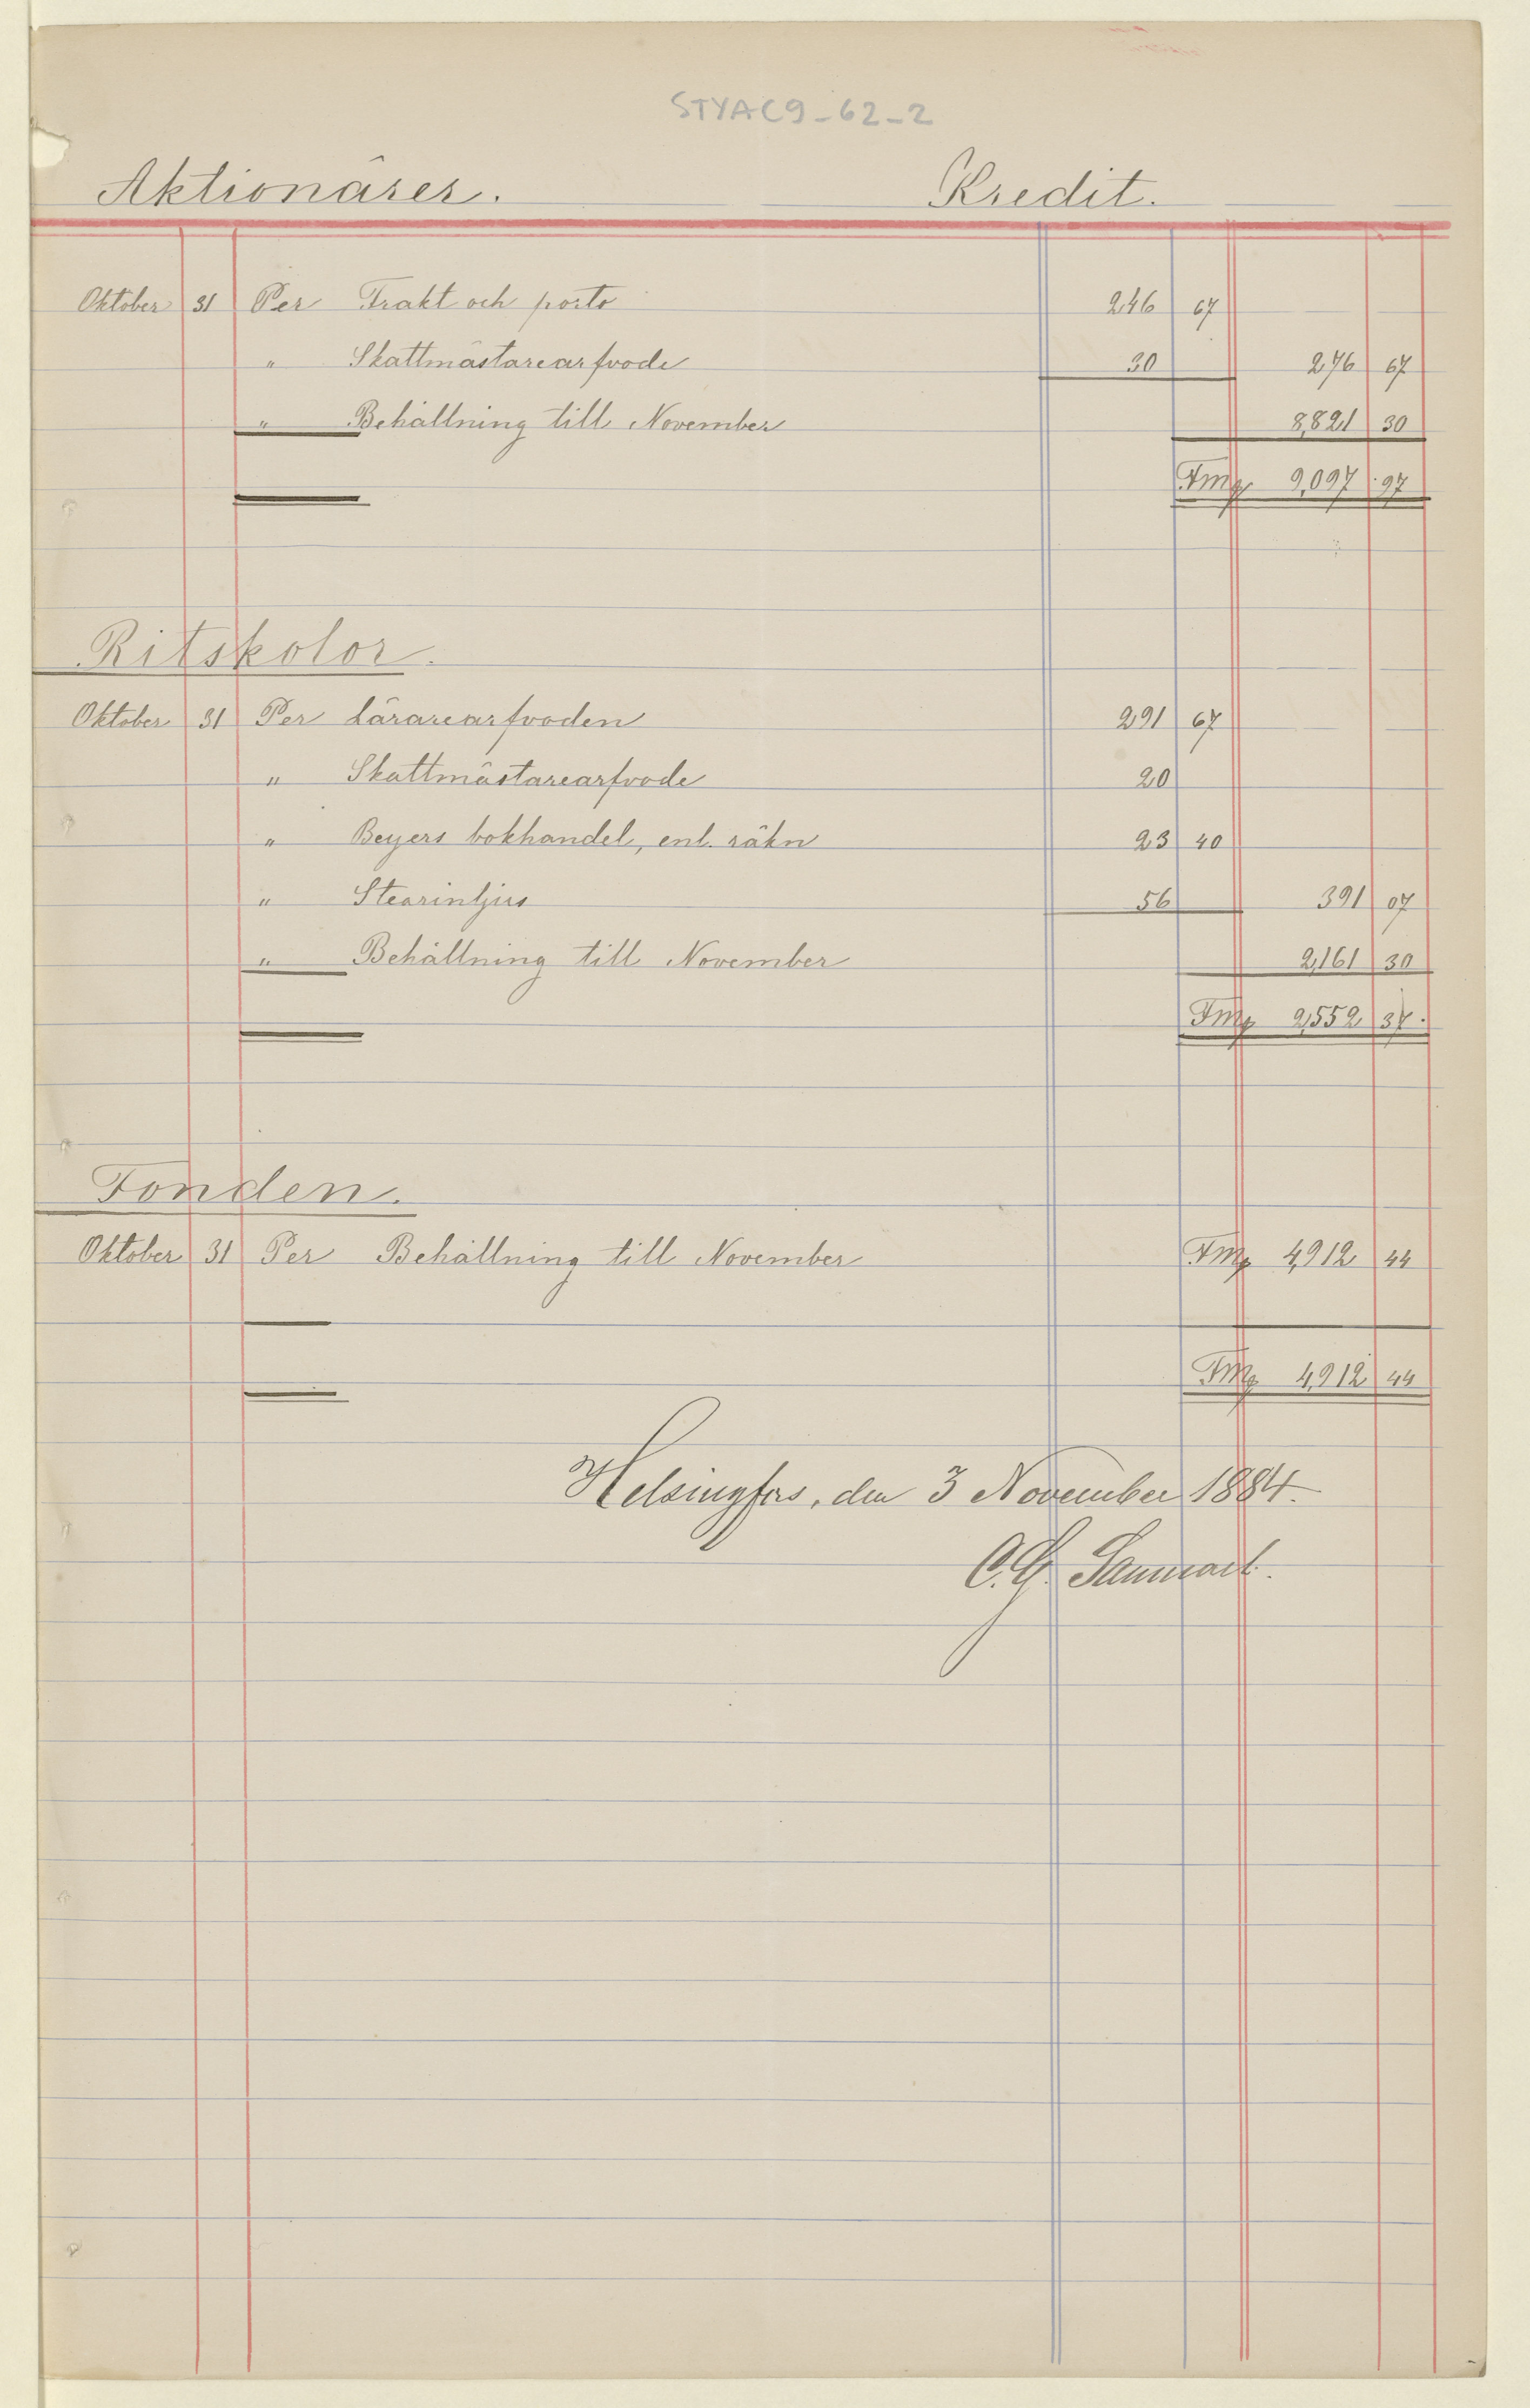 STYAC9-62-2
Aktionärer. Kredit.
Oktober 31 Per Frakt och porto 246 67
" Skattmästarearfvode 30 276 67
" Behållning till November 8,821 30
Fmg 9,097 97
Ritskolor.
Oktober 31 Per Lärarearfvoden 291 67
" Skattmästarearfvode 20
" Beyers bokhandel, enl. räkn 23 40
" Stearinljus 56 391 07
" Behållning till November 2,161 30
Fmg 2,552 37.
Fonden.
Oktober 31 Per Behållning till November Fmg 4,912 44
Fmg 4,912 44
Helsingfors, den 3 November 1884.
C. G.